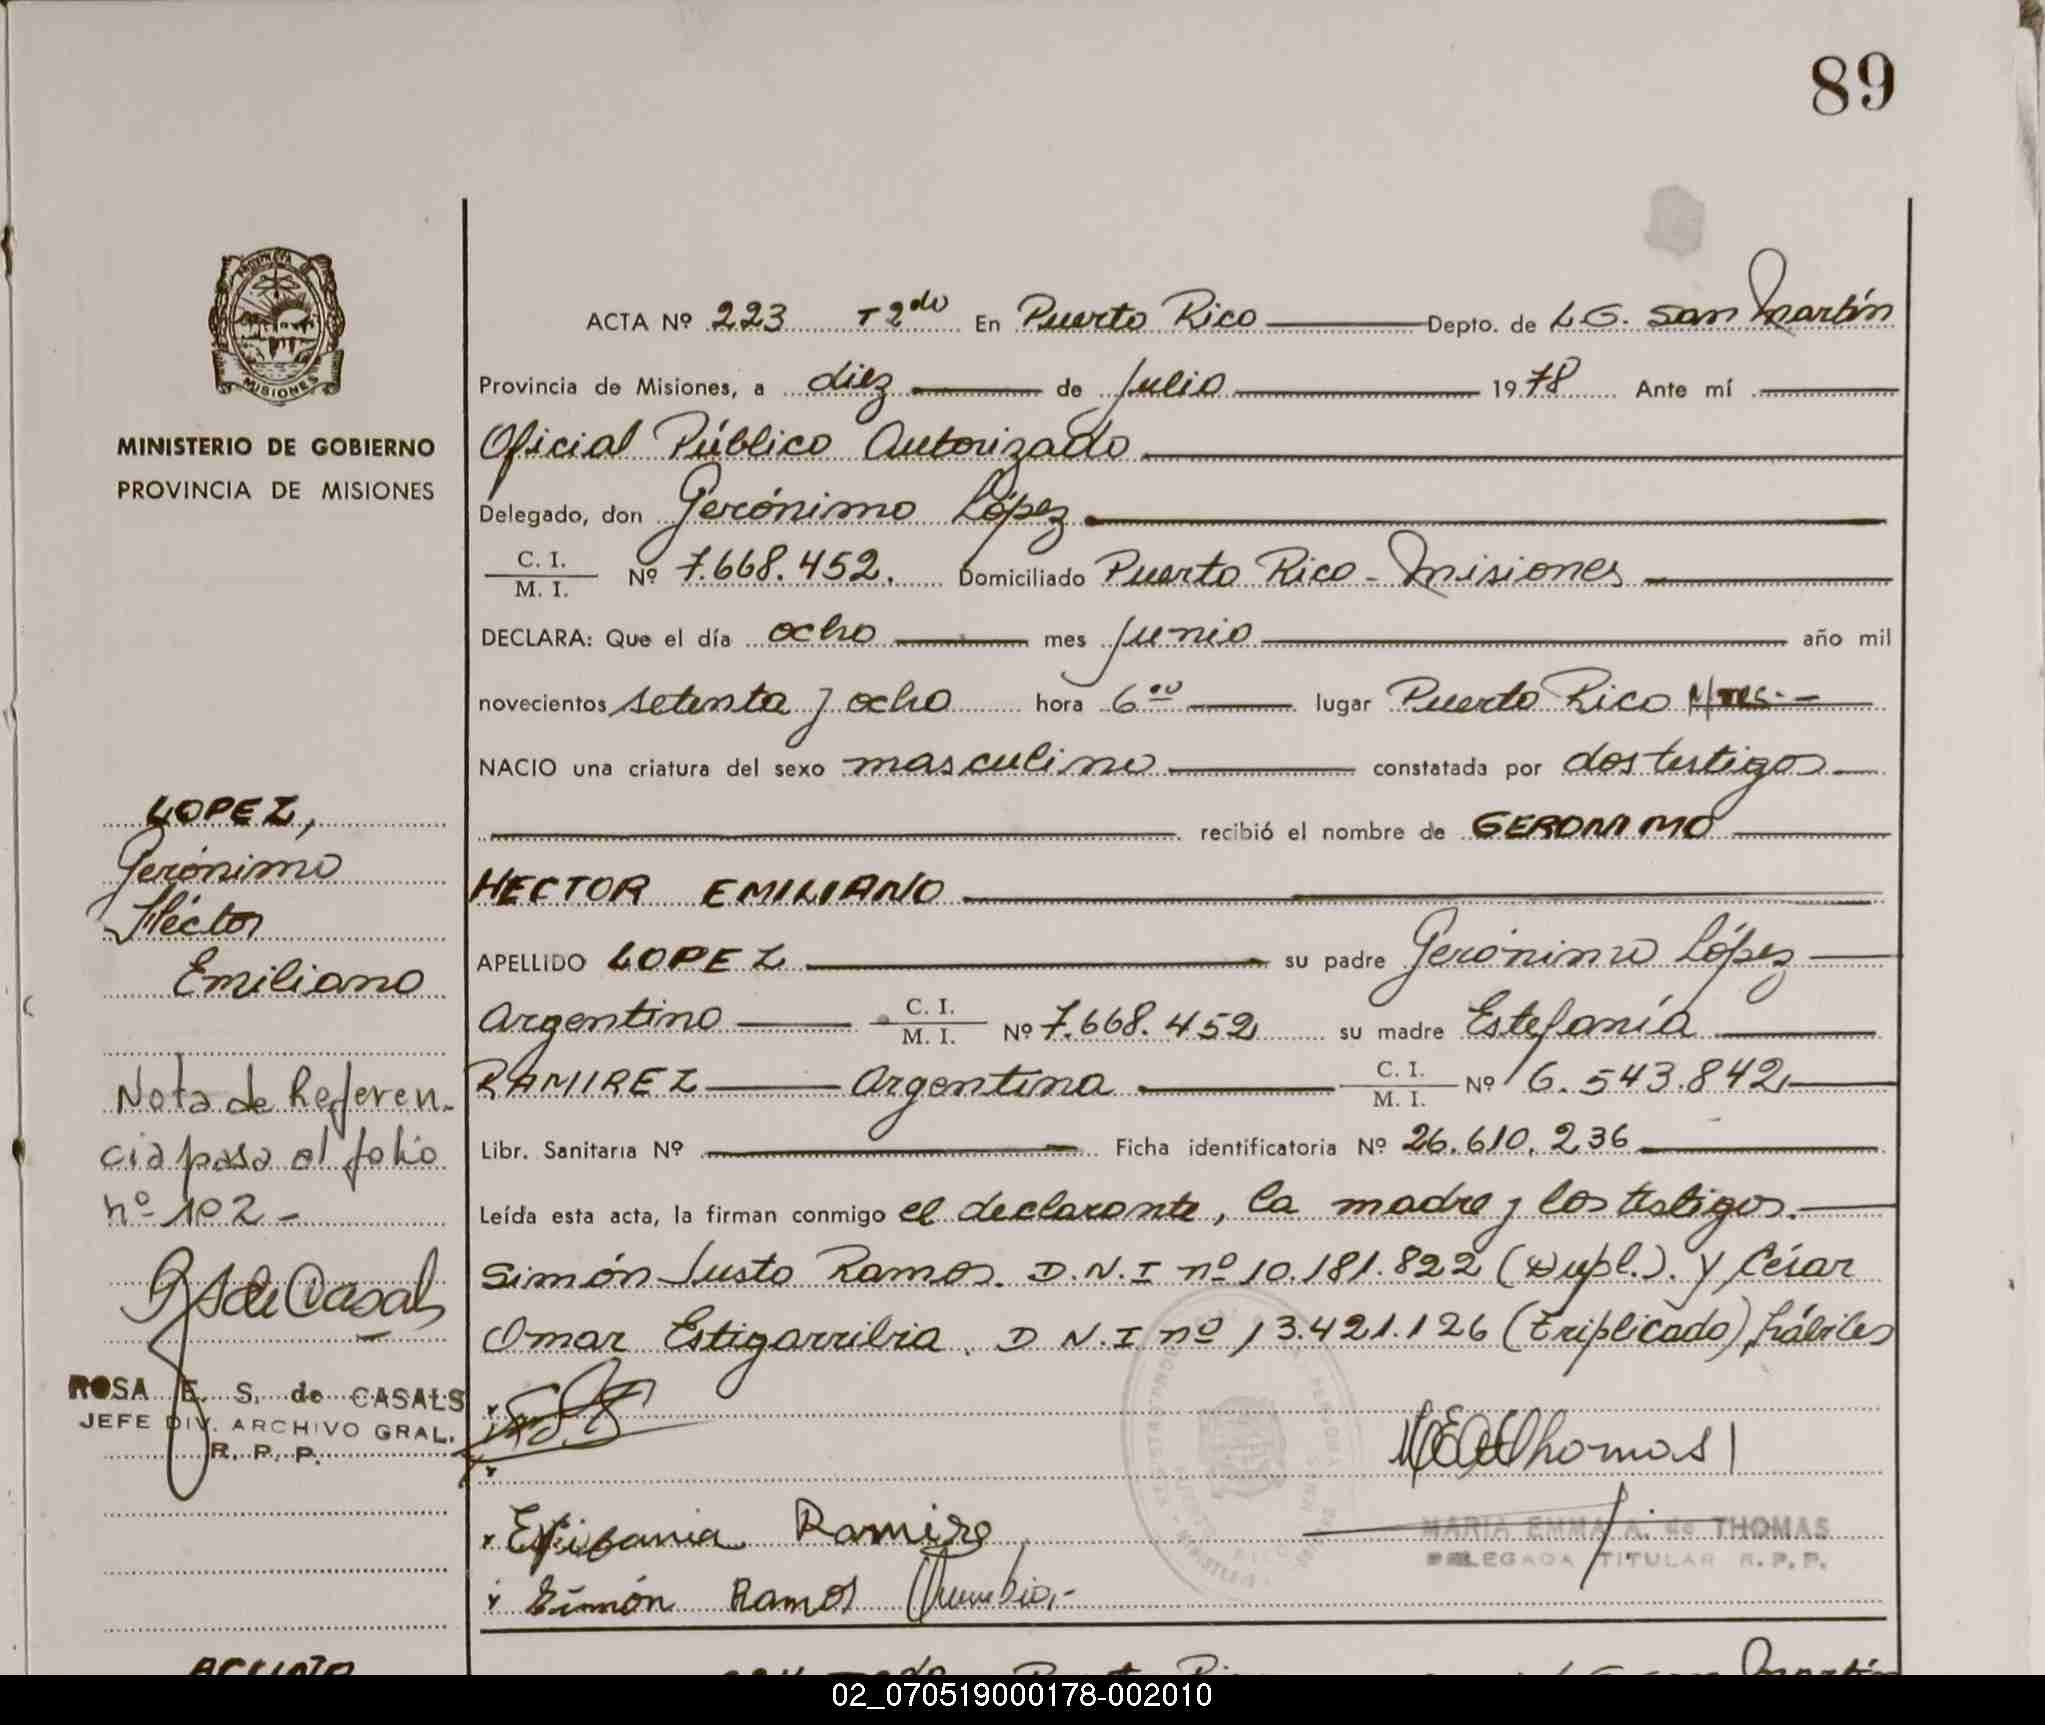 89
MINISTERIO DE GOBIERNO
PROVINCIA DE MISIONES
MISIONES
ACTA Nº 223 T 2do En Puerto Rico Depto. de L.G. San Martín
Provincia de Misiones, a diez de Julio 1978 Ante mí
Oficial Público Autorizado
Delegado, don Gerónimo López
C. I.
M. I. Nº 7.668.452. Domiciliado Puerto Rico - Misiones
DECLARA: Que el día ocho mes Junio año mil
novecientos setenta y ocho hora 6 00 lugar Puerto Rico Mnes.
NACIO una criatura del sexo masculino constatada por dos testigos
recibió el nombre de GERONIMO
HECTOR EMILIANO
APELLIDO LOPEZ su padre Gerónimo López
Argentino C. I.
M. I. Nº 7.668.452 su madre Estefanía
RAMIREZ Argentina C. I.
M. I. Nº 6.543.842
Libr. Sanitaria Nº Ficha identificatoria Nº 26.610.236
Leída esta acta, la firman conmigo el declarante, la madre y los testigos.
Simón Justo Ramos. D.N.I nº 10.181.822 (Dupl.). Y César
Omar Estigarribia. D N.I nº 13.421.126 (Triplicado), hábiles
LOPEZ,
Gerónimo
Héctor
Emiliano
Nota de Referen-
cia pasa al folio
nº 102 -
ROSA E. S. de CASALS
JEFE DIV. ARCHIVO GRAL.
R. P. P.
Ramirez
Simón Ramos
MARIA EMMA A. de THOMAS
DELEGADA TITULAR R. P. P.
02_070519000178-002010